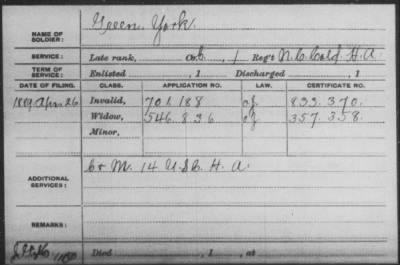 NAME OF SOLDIER: Green, York.
SERVICE: Late rank, Co. 6, 1 Reg't N.C. Cold. H.A.
TERM OF SERVICE: Enlisted , 1 Discharged , 1
DATE OF FILING. CLASS. APPLICATION NO. LAW. CERTIFICATE NO.
1889 Apr 26 Invalid, 701.188 833.370.
Widow, 546.836 357.358.
Minor,
ADDITIONAL SERVICES: Co M. 14 U.S.C. H. A.
REMARKS:
Died , 1 , at